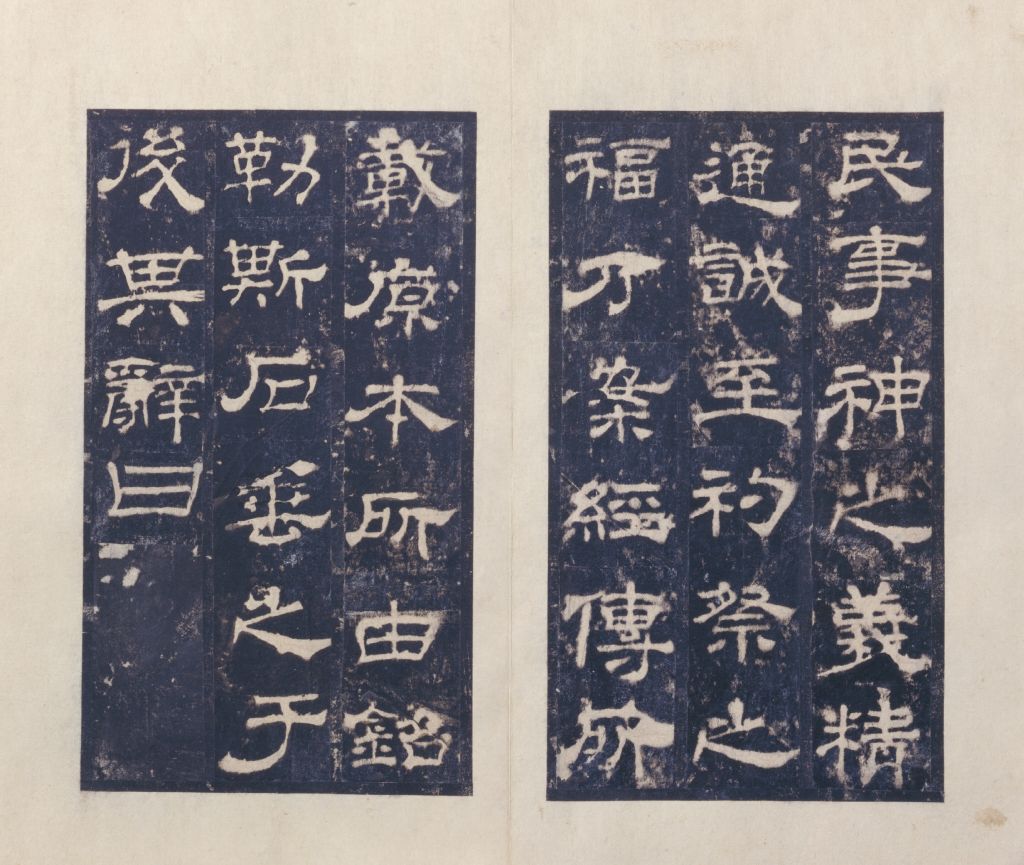 民事神之義精
通誠至礿祭之
福乃案經傳所
載原本所由銘
勒斯石垂之于
後其辭曰